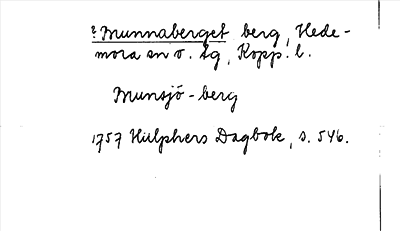 ? Munnaberget berg, Hede-
mora sn o. tg, Kopp. l.
Munsjö-berg
1757 Hülphers Dagbok, s. 546.